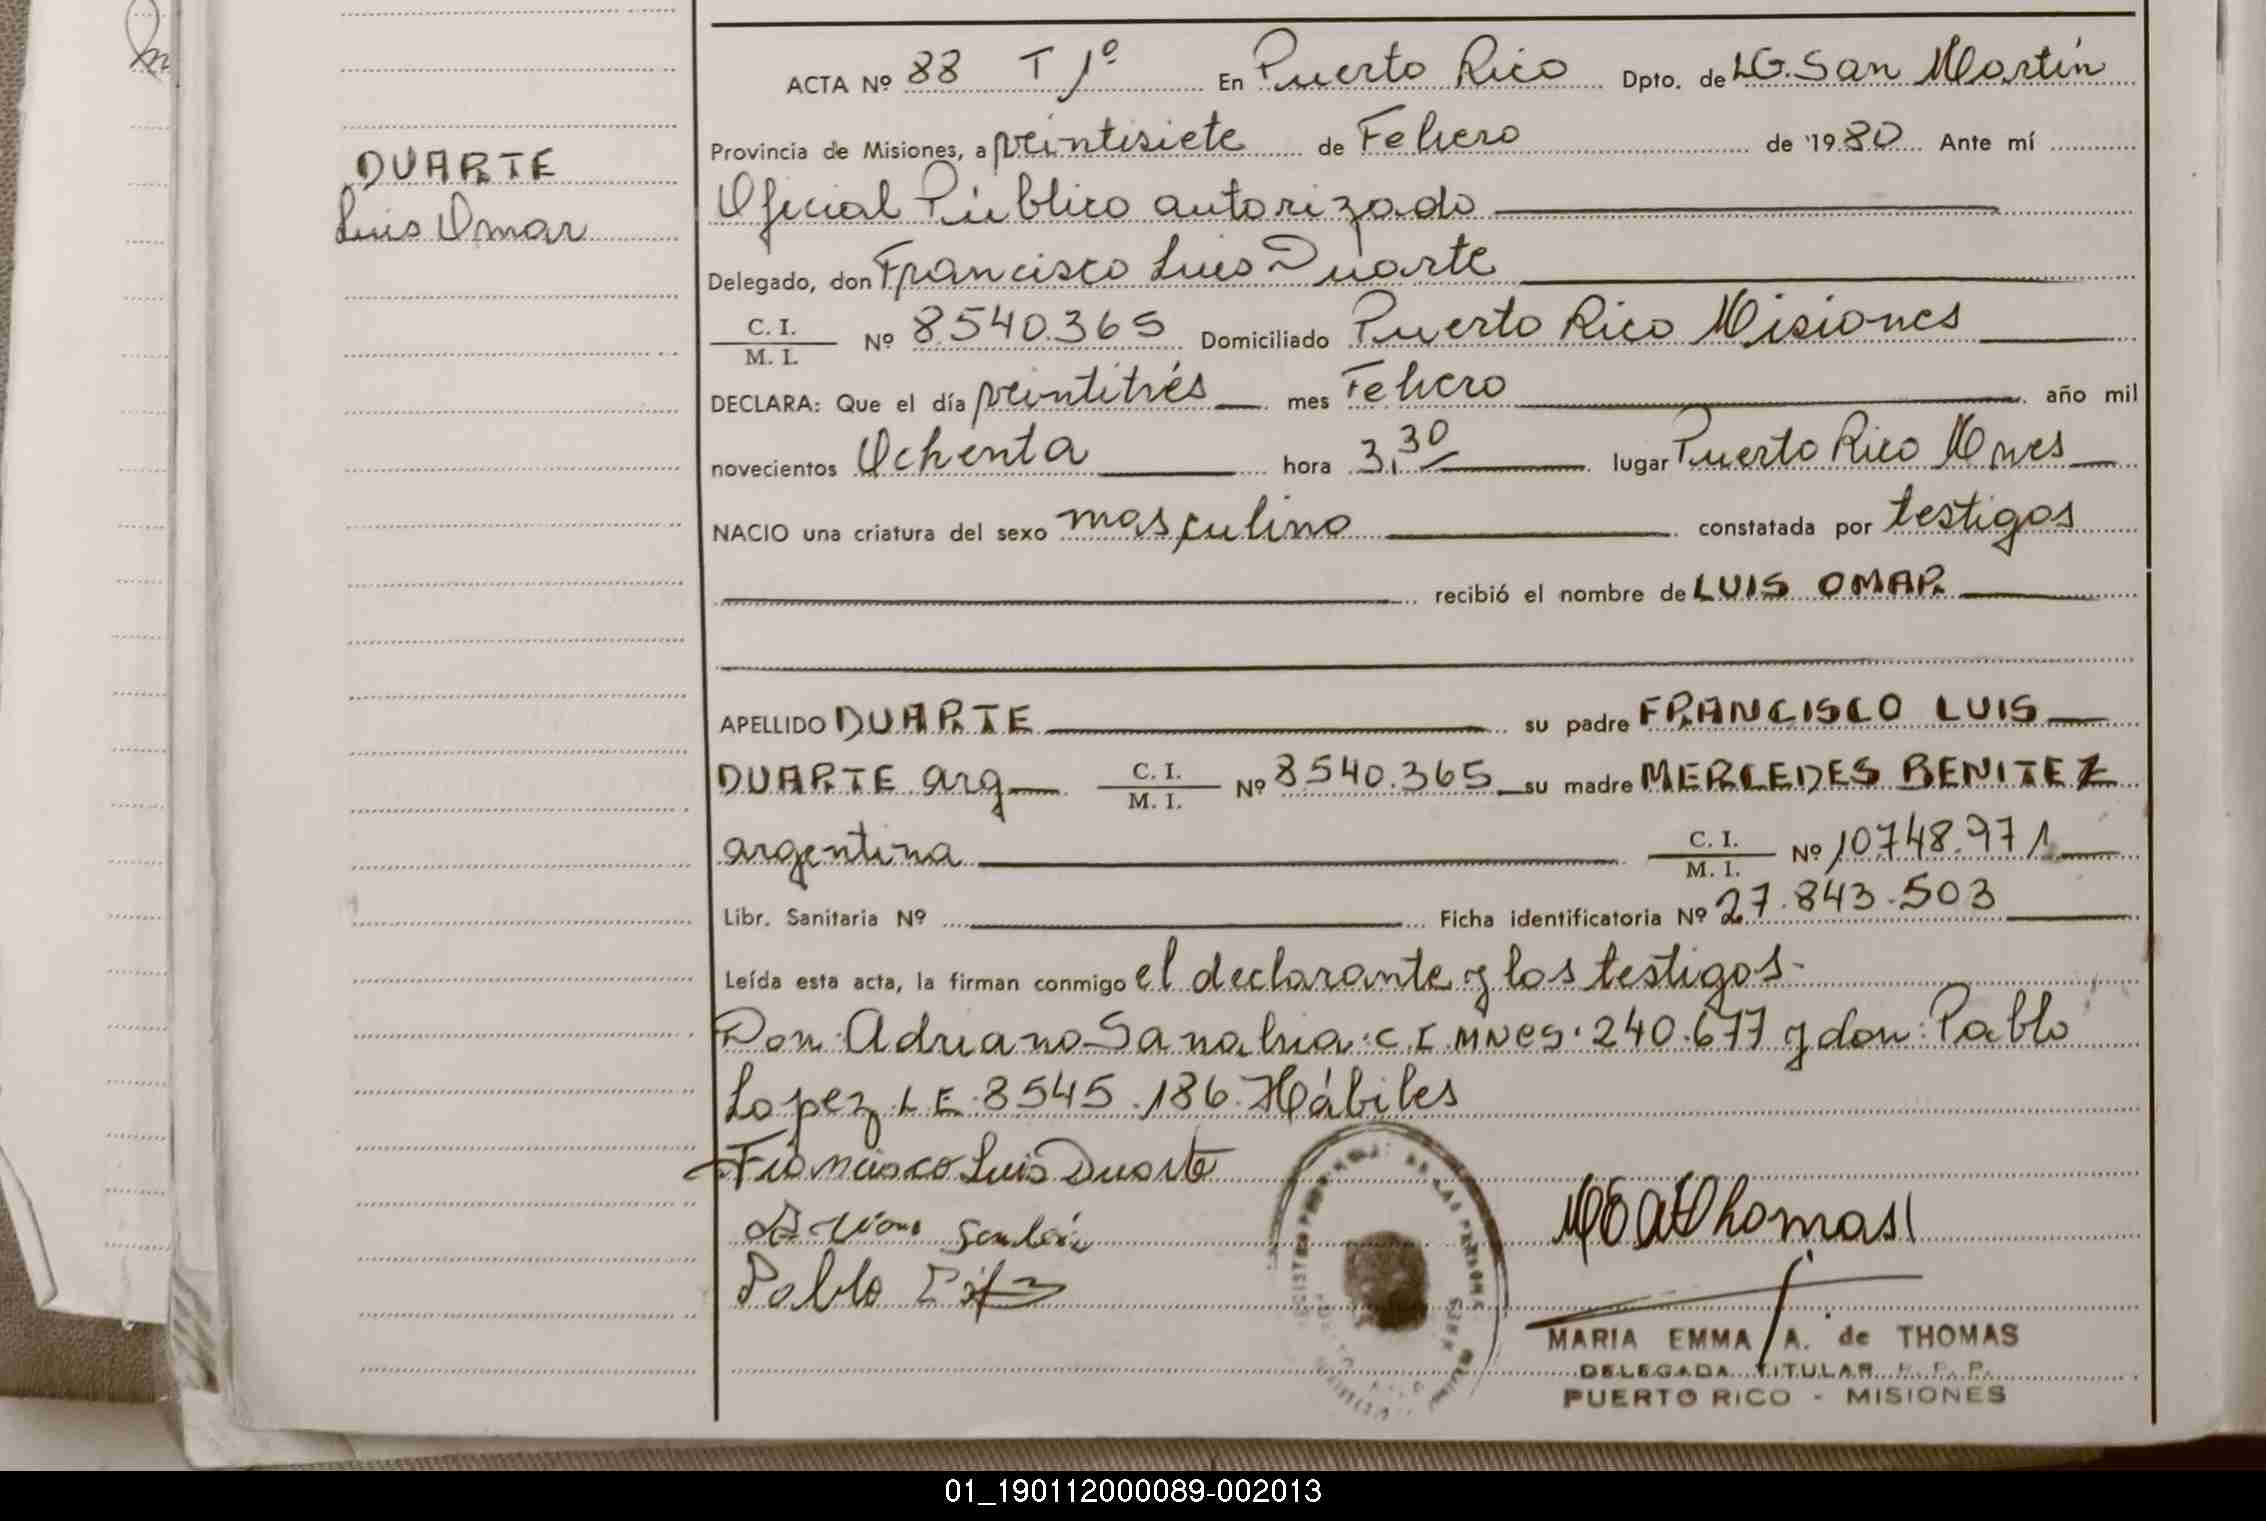 ACTA Nº 88 T 1º En Puerto Rico Dpto. de LG. San Martín
Provincia de Misiones, a veintisiete de Febrero de 1980 Ante mí
DUARTE
Luis Omar
Oficial Público autorizado
Delegado, don Francisco Luis Duarte
C. I.
M. I. Nº 8.540.365 Domiciliado Puerto Rico Misiones
DECLARA: Que el día veintitrés mes Febrero año mil
novecientos Ochenta hora 3,30 lugar Puerto Rico Mnes
NACIO una criatura del sexo masculino constatada por testigos
recibió el nombre de LUIS OMAR
APELLIDO DUARTE su padre FRANCISCO LUIS
DUARTE arg C. I. M. I. Nº 8540.365 su madre MERCEDES BENITEZ
argentina C. I. M. I. Nº 10.748.971
Libr. Sanitaria Nº Ficha identificatoria Nº 27.843.503
Leída esta acta, la firman conmigo el declarante y los testigos-
Don: Adriano Sanabria: C.I. MNES. 240.677 y don: Pablo
Lopez L E. 8545.186. Hábiles
Francisco Luis Duarte
Pablo
MARIA EMMA A. de THOMAS
DELEGADA TITULAR R. P. P.
PUERTO RICO - MISIONES
01_190112000089-002013